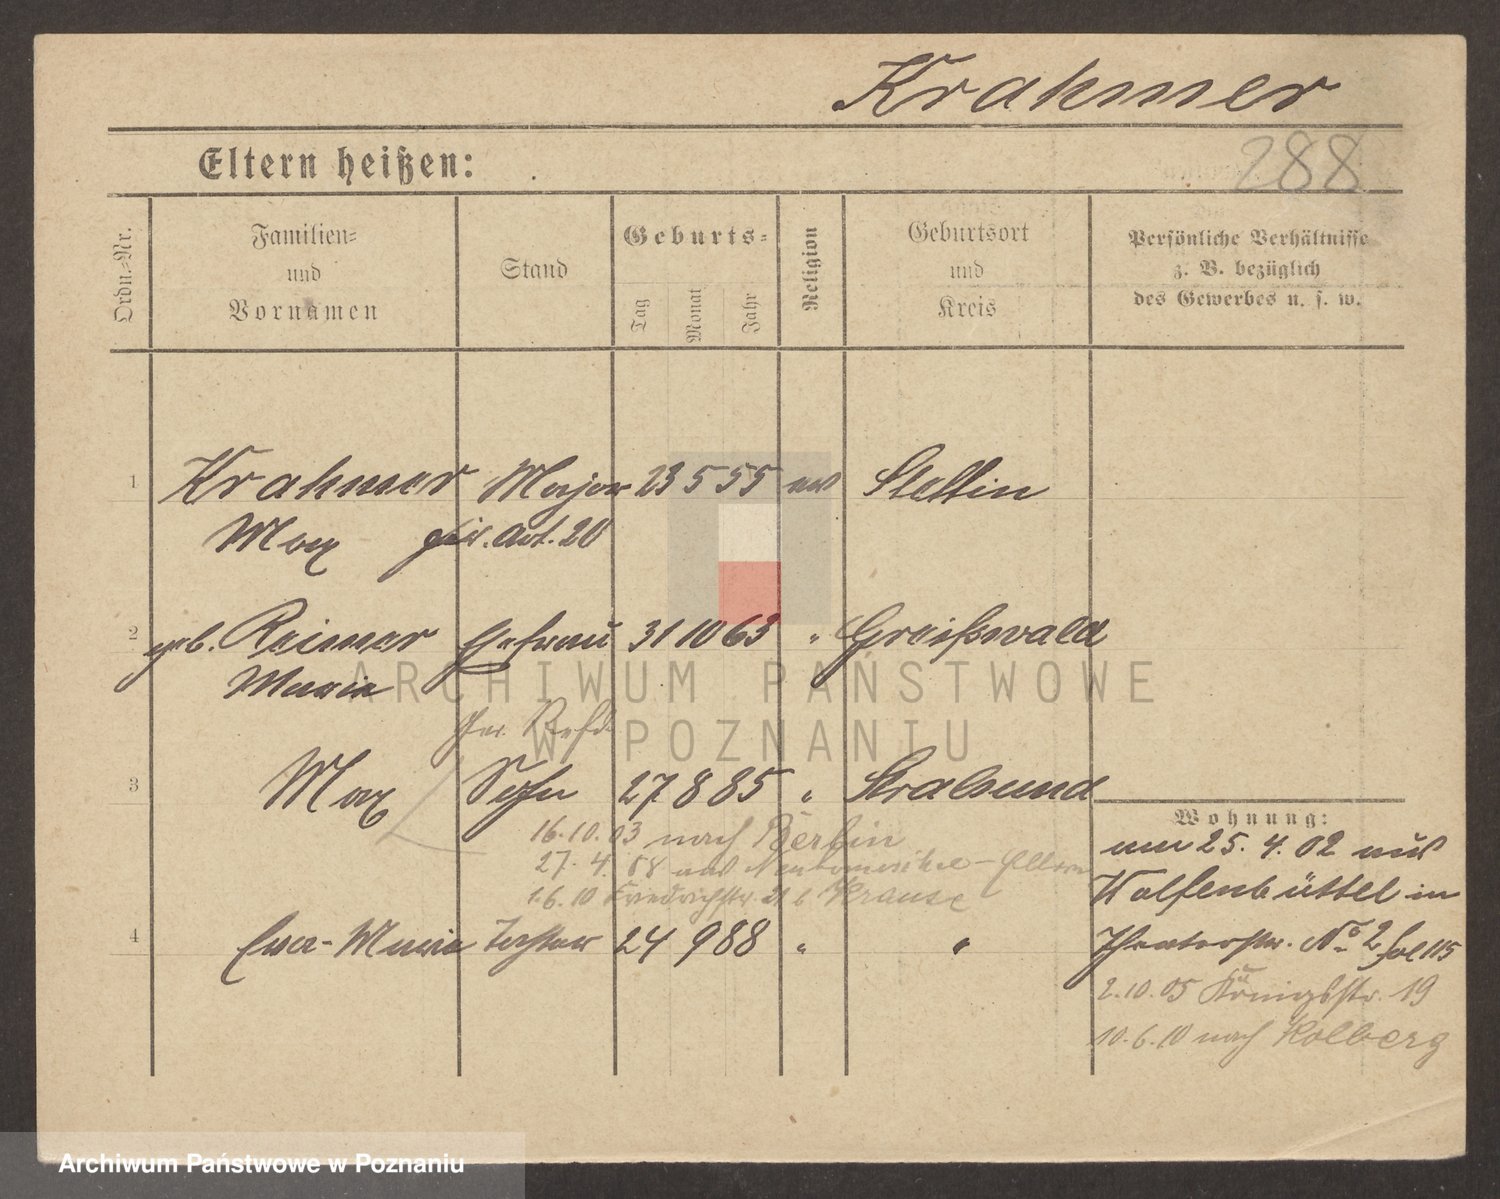 Krahmer
Eltern heißen:
288
Ordn.-Nr.
Familien-
und
Vornamen
Stand
Geburts-
Tag
Monat
Jahr
Religion
Geburtsort
und
Kreis
Persönliche Verhältnisse
z. B. bezüglich
des Gewerbes u. s. w.
1 Krahmer Major 23 5 55 ev Stettin
Max Art. 20
2 geb. Reimer Ehefrau 31 10 63 " Greifswald
Marie
Refd.
3 Max Sohn 27 8 85 " Stralsund
16.10.03 nach Berlin
Wohnung:
am 25. 4. 02 aus
27. 4. 88 aus Neutomischel - Eltern
Wolfenbüttel in
1.6.10 Friedrichstr. 21 b Krause
4 Eva-Marie Tochter 24 9 88 " "
Theaterstr. No 2 fol 115
2.10.05 Königstr. 19
10.6.10 nach Kolberg
ARCHIWUM PAŃSTWOWE
W POZNANIU
Archiwum Państwowe w Poznaniu